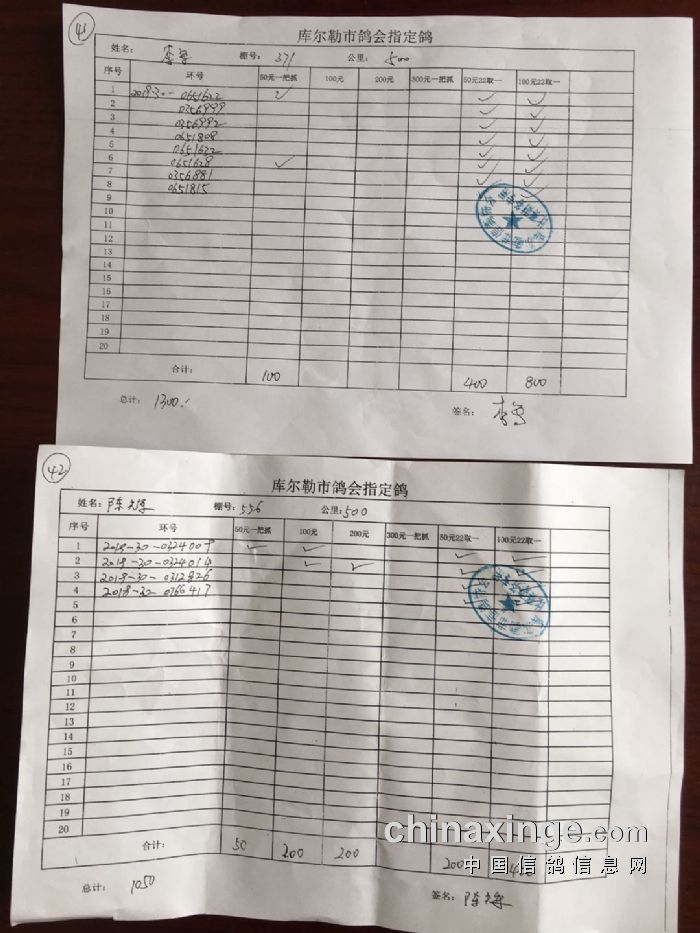 41
库尔勒市鸽会指定鸽
姓名: 棚号: 371 公里: 500
序号 环号 50元一把抓 100元 200元 300元一把抓 50元22取一 100元22取一
1 2018-30-0651622 ✓ ✓ ✓
2 0356999 ✓ ✓
3 0356992 ✓ ✓
4 0651808 ✓ ✓
5 0651622 ✓ ✓
6 0651628 ✓ ✓ ✓
7 0356881 ✓ ✓
8 0651815 ✓ ✓
9
10
11
12
13
14
15
16
17
18
19
20
合计: 100 400 800
总计: 1300 签名:
42
库尔勒市鸽会指定鸽
姓名: 陈 棚号: 556 公里: 500
序号 环号 50元一把抓 100元 200元 300元一把抓 50元22取一 100元22取一
1 2018-30-0324009 ✓ ✓ ✓ ✓
2 2018-30-0324014 ✓ ✓ ✓ ✓
3 2018-30-0312826 ✓
4 2018-30-0766417 ✓
5
6
7
8
9
10
11
12
13
14
15
16
17
18
19
20
合计: 50 200 200 200
总计: 1050 签名: 陈
chinaxinge.com
中国信鸽信息网